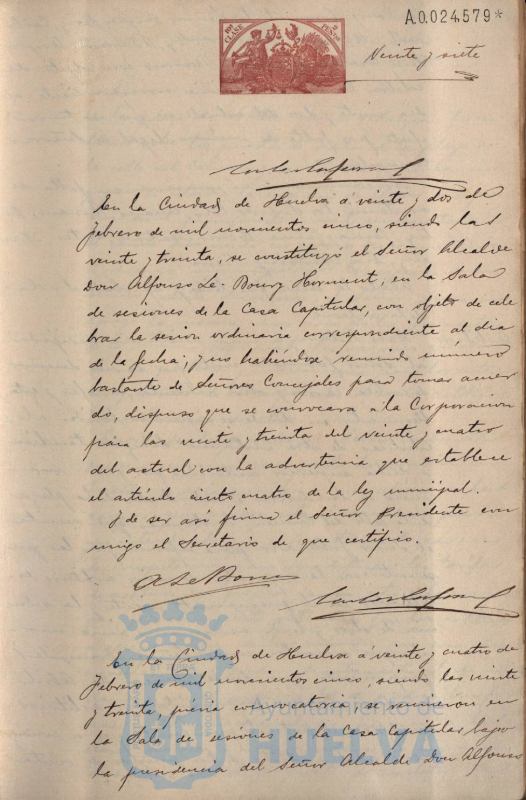 10ª CLASE
2 PESETAS
A.0.024.579*
Veinte y siete
En la Ciudad de Huelva á veinte y dos de
Febrero de mil novecientos cinco, siendo las
veinte y treinta, se constituyó el Señor Alcalde
Don Alfonso Le-Bourg Horment, en la Sala
de sesiones de la Casa Capitular, con objeto de cele
brar la sesion ordinaria correspondiente al dia
de la fecha; y no habiéndose reunido número
bastante de Señores Concejales para tomar acuer
do, dispuso que se convocara a la Corporacion
para las veinte y treinta del veinte y cuatro
del actual con la advertencia que establece
el artículo ciento cuatro de la ley municipal.
Y de ser asi firma el Señor Presidente con
migo el Secretario de que certifico.
En la Ciudad de Huelva á veinte y cuatro de
Febrero de mil novecientos cinco, siendo las veinte
y treinta, prévia convocatoria, se reunieron en
la Sala de sesiones de la Casa Capitular bajo
la presidencia del Señor Alcalde Don Alfonso
Ayuntamiento de
HUELVA